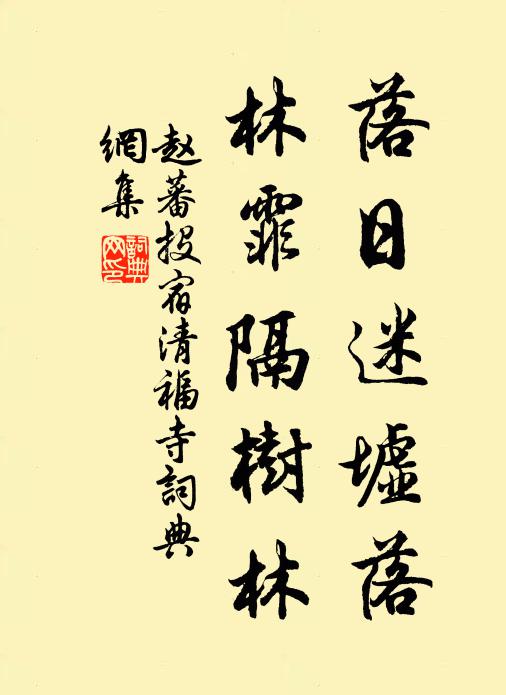 落日迷墟落
林霏隔樹林
赵蕃投宿清福寺詞典
網集
詞典网印